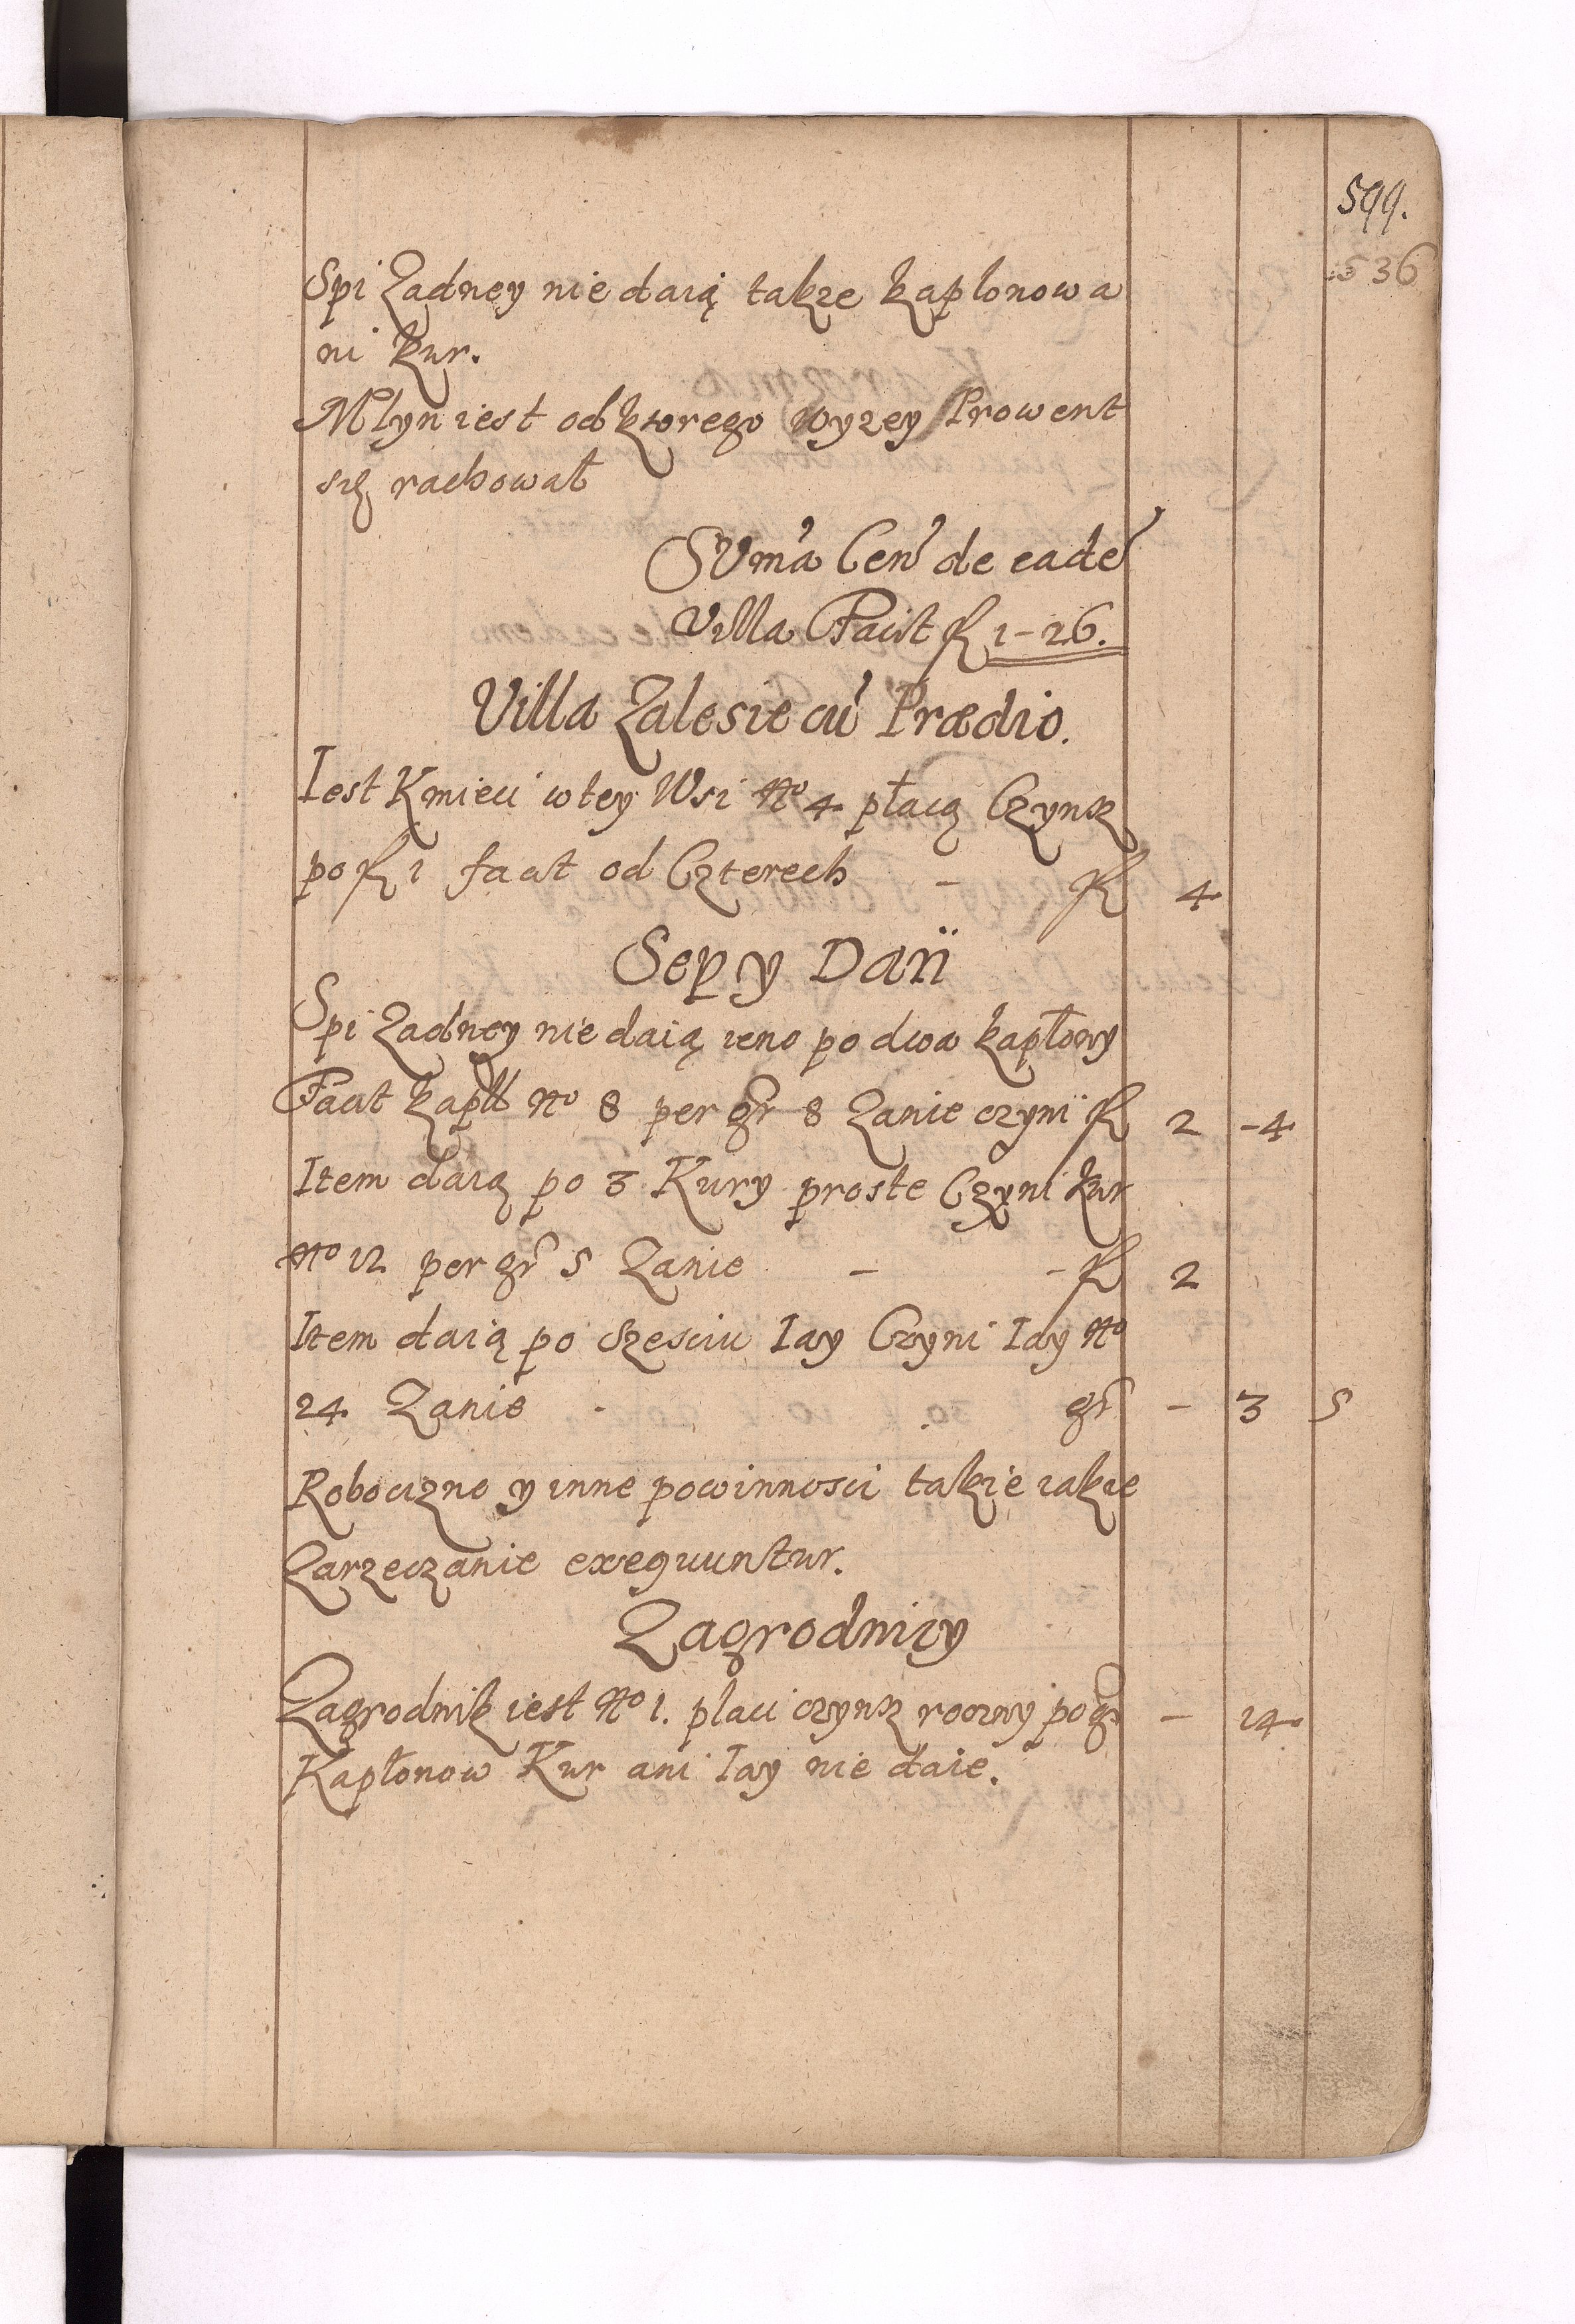 599.
536
Spi Zadney nie daią takze kaplonow a
ni kur.
Mlyn iest od ktorego wyzey Prowent
się rachował
SVm̃a Cen̛ de eade̛
Villa Facit fl 1-26.
Villa Zalesie cư Prædio.
Iest Kmieci w tey Wsi No 4 płacą Czynsz
po fl 1 facit od Czterech - fl 4
Sepy Danii
Spi Zadney nie daią ieno po dwa kapłony
Facit kapll No 8 per gr 8 Zanie czyni fl 2 -4
Item daią po 3 Kury proste Czyni kur
No 12 per gr 5 Zanie - - fl 2
Item daią po szesciu Iay Czyni Iay No
24 Zanie - gr - 3 5
Robocizno y inne powinnosci takie iakie
Zarzeczanie exequuntur.
Zagrodnicy
Zagrodnik iest No 1. placi czynsz roczny po gr - 24
Kapłonow Kur ani Iay nie daie.